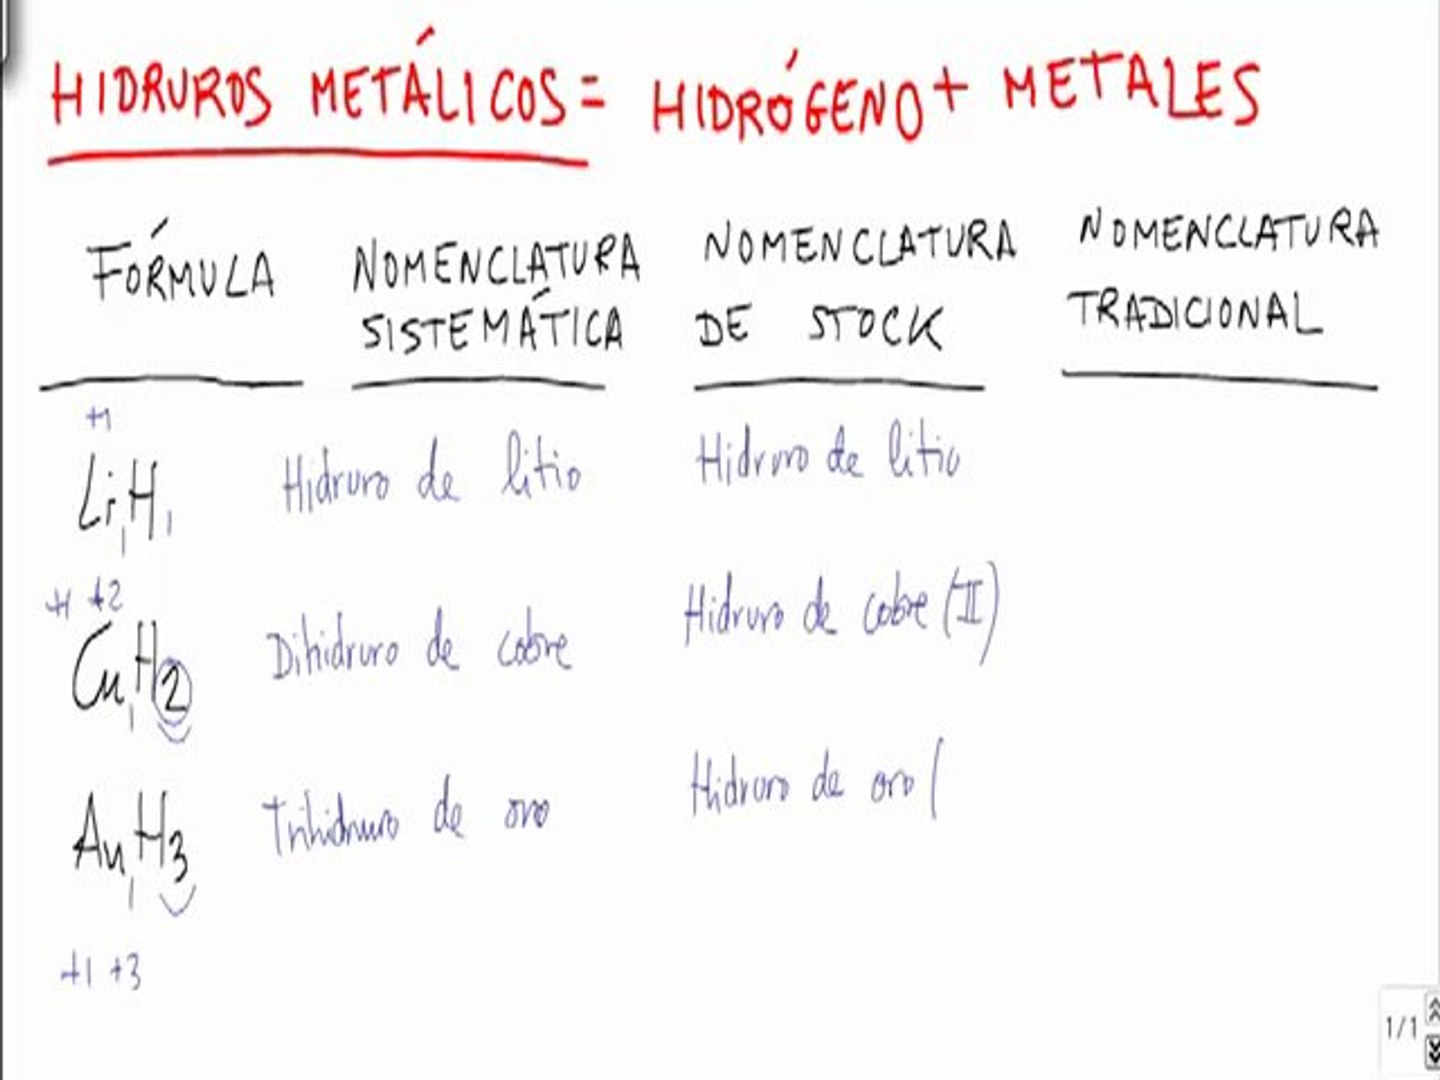 HIDRUROS METÁLICOS = HIDRÓGENO + METALES
FÓRMULA NOMENCLATURA SISTEMÁTICA NOMENCLATURA DE STOCK NOMENCLATURA TRADICIONAL
+1
Li1H1 Hidruro de litio Hidruro de litio
+1 +2
Cu1H2 Dihidruro de cobre Hidruro de cobre (II)
Au1H3 Trihidruro de oro Hidruro de oro (
+1 +3
1/1